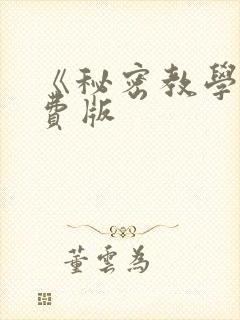 《秘密教學
費版
董雲為